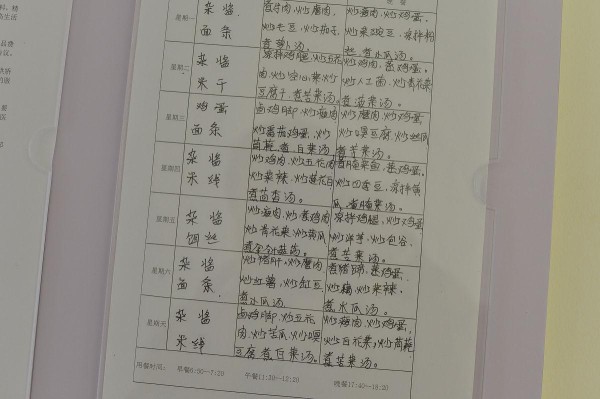 星期一
杂 临
面 条
煮白肉、炒魔肉
炒毛豆、炒茄子
煮萝卜汤。
炒瘦肉、炒鸡蛋
炒菜豌豆、凉拌
煮水瓜汤。
星期二
杂 临
米 干
凉拌鸡腿、炒五花
肉、炒空心菜、炒
豆腐干、煮苦菜汤。
炒鸡肉、蒸鸡蛋。
炒人工菌、炒青花菜
煮菠菜汤。
星期三
鸡 蛋
面 条
卤鸡脚、炒瘦肉
炒番茄鸡蛋、炒
茼蒿、煮白菜汤
炒魔肉、炒鸡蛋
炒嫩豆腐、炒丝瓜
煮芋菜汤。
星期四
杂 临
米 线
炒鸡肉、炒五花肉
炒菜辣、炒莲花白
煮茴香汤。
煮腌菜鱼、蒸鸡蛋、
炒四季豆、凉拌黄
瓜、煮腌菜汤。
星期五
杂 临
饵 丝
炒瘦肉、炒煮鸡肉
炒青花菜、炒黄瓜
煮金针菇汤。
凉拌鸡腿、炒鸡蛋
炒洋芋、炒包谷、
煮苦菜汤。
星期六
杂 临
面 条
炒猪肝、炒魔肉
炒红薯、炒缸豆
煮水瓜汤
煮猪蹄、蒸鸡蛋、
炒藕、炒菜辣、
煮水瓜汤。
星期天
杂 临
米 线
卤鸡脚、炒五花
肉、炒苦瓜、炒嫩
豆腐、煮白菜汤。
炒瘦肉、炒鸡蛋、
炒白花菜、炒茼蒿
煮苦菜汤。
用餐时间: 早餐6:50~7:20 午餐11:30~12:20 晚餐17:40~18:20